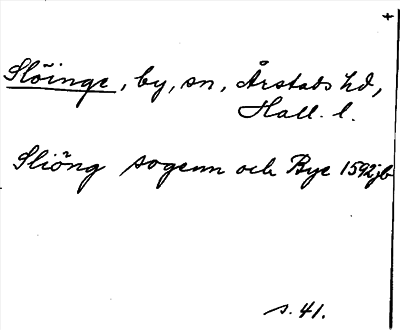 +
Slöinge, by, sn, Årstads hd,
Hall. l.
Sliöng sogenn och Bye 1592 jb
s. 41.